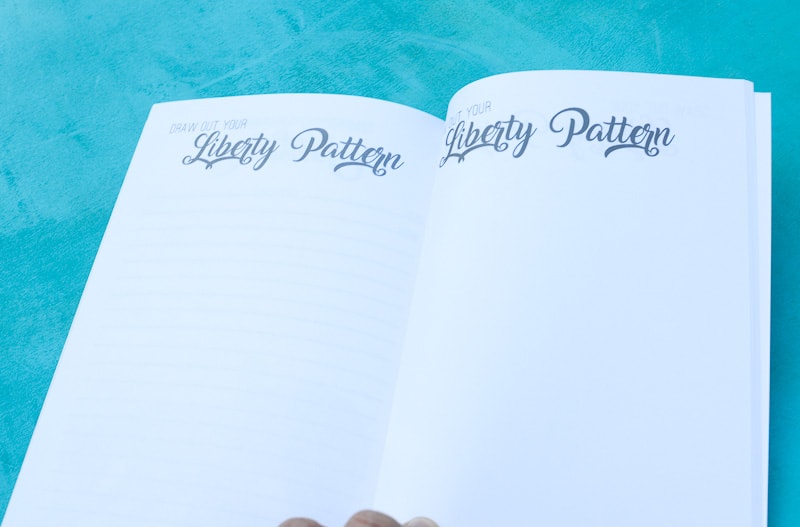 DRAW OUT YOUR
Liberty Pattern
OUT YOUR
Liberty Pattern